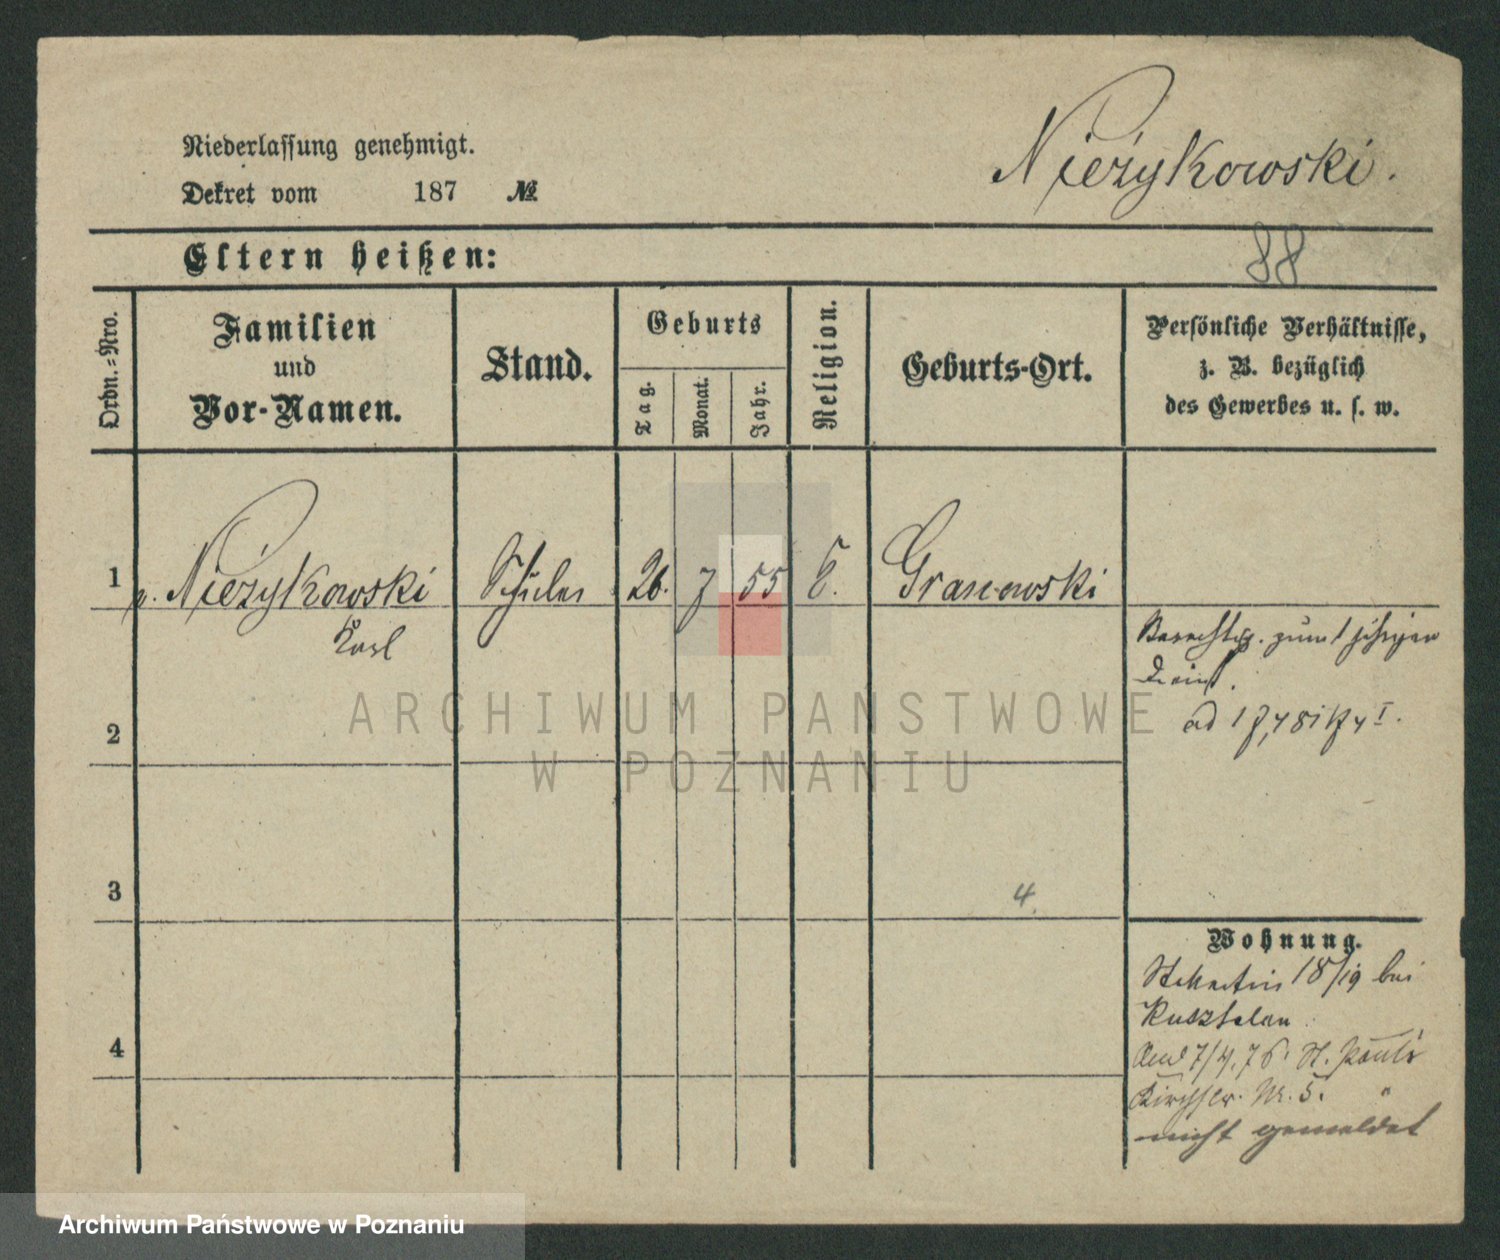 Nieżykowski.
Niederlassung genehmigt.
Dekret vom 187 №
88
Eltern heißen:
Ordn.=Nro.
Familien
und
Vor-Namen.
Stand.
Geburts
Tag.
Monat.
Jahr.
Religion.
Geburts-Ort.
Persönliche Verhältnisse,
z. B. bezüglich
des Gewerbes u. s. w.
1 v. Nieżykowski Schüler 26. 7 55 Granowski
Karl
zum 1 jährigen
Dienst.
ad
2
3
4.
Wohnung.
St Martin 18/19 bei
4
7/4. 76. St. Pauli
Kirchstr. Nr. 5.
nicht gemeldet
ARCHIWUM PAŃSTWOWE
W POZNANIU
Archiwum Państwowe w Poznaniu